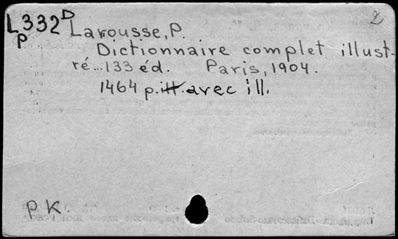 L332D Larousse, P.
P
Dictionnaire complet illust-
ré...133 éd. Paris, 1904.
1464 p. avec ill.
pK.